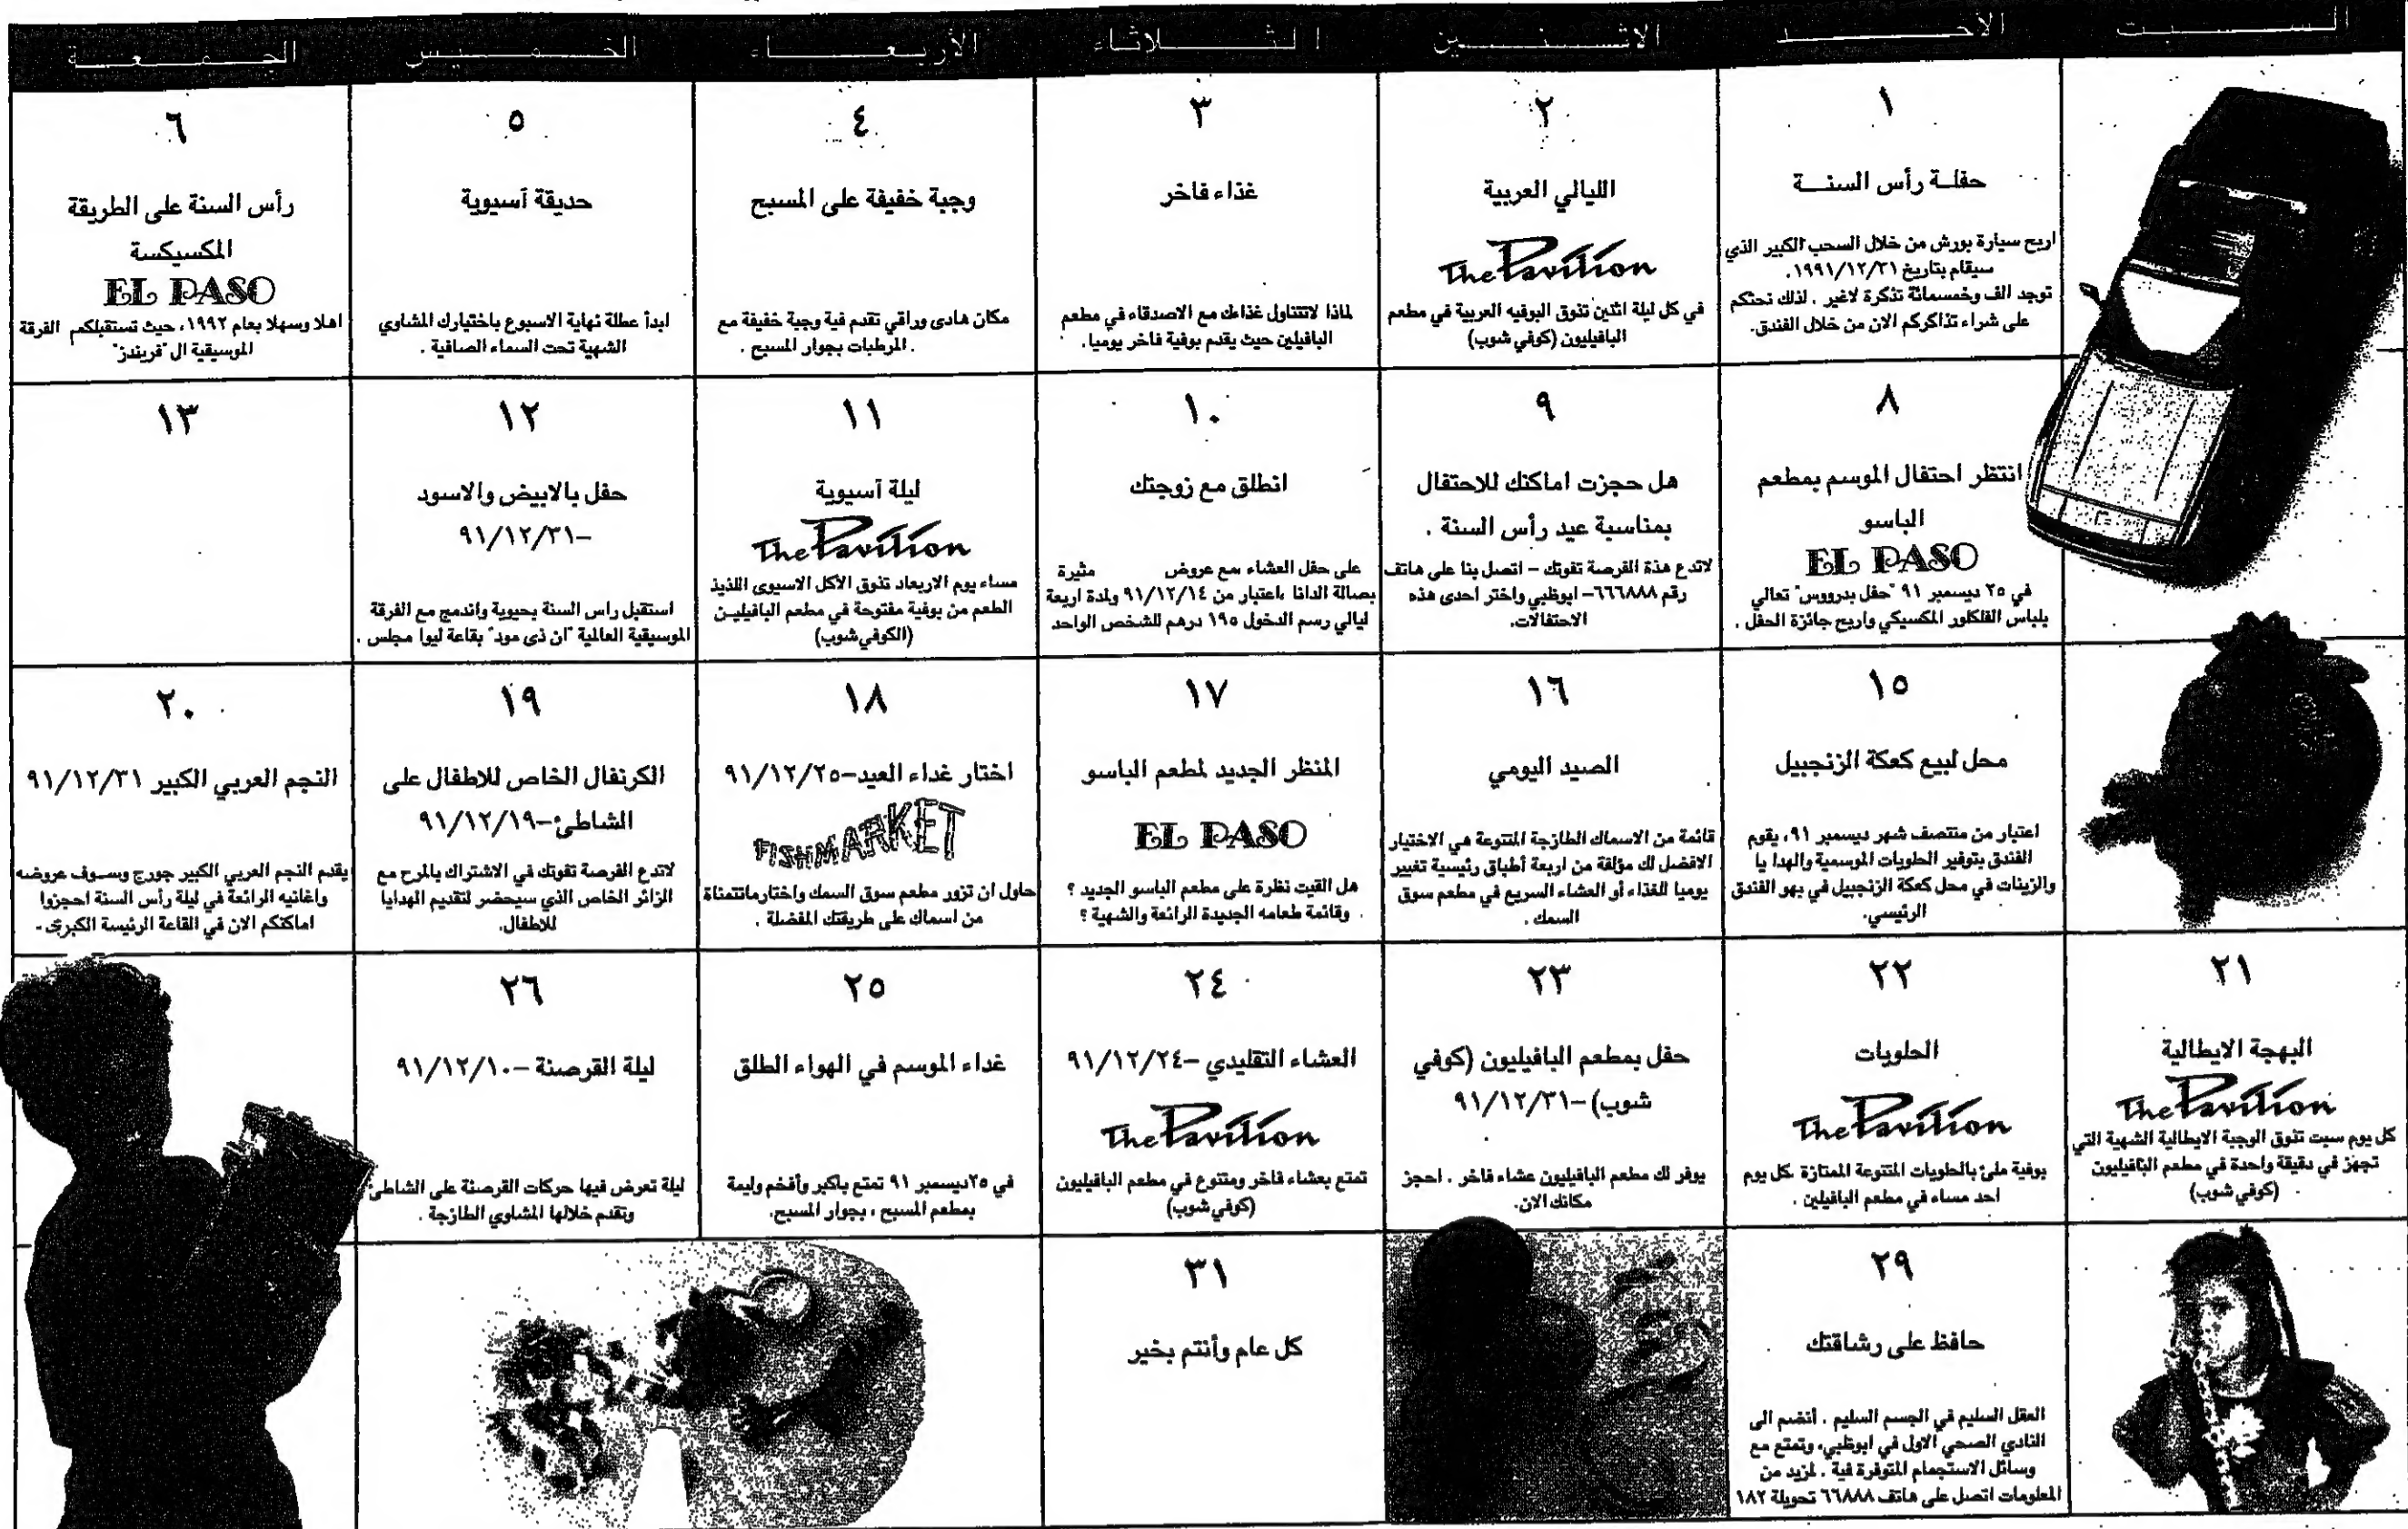 السبت
الأحد
الاثنين
الثلاثاء
الأربعاء
الخميس
الجمعة
١
حفلة رأس السنة
اربح سيارة بورش من خلال السحب الكبير الذي
سيقام بتاريخ ١٩٩١/١٢/٣١.
توجد الف وخمسمائة تذكرة لاغير . لذلك نحثكم
على شراء تذاكركم الان من خلال الفندق.
٢
الليالي العربية
The Pavilion
في كل ليلة اثنين تذوق البوفيه العربية في مطعم
البافيليون (كوفي شوب)
٣
غذاء فاخر
لماذا لاتتناول غذاءك مع الاصدقاء في مطعم
البافيلين حيث يقدم بوفية فاخر يوميا.
٤
وجبة خفيفة على المسبح
مكان هادى وراقي تقدم فية وجبة خفيفة مع
المرطبات بجوار المسبح .
٥
حديقة آسيوية
ابدأ عطلة نهاية الاسبوع باختيارك المشاوي
الشهية تحت السماء الصافية .
٦
رأس السنة على الطريقة
المكسيكسة
EL PASO
اهلا وسهلا بعام ١٩٩٢، حيث تستقبلكم الفرقة
الموسيقية ال "فريندز"
٨
انتظر احتفال الموسم بمطعم
الباسو
EL PASO
في ٢٥ ديسمبر ٩١ "حفل بدرووس" تعالي
بلباس الفلكلور المكسيكي واربح جائزة الحفل .
٩
هل حجزت اماكنك للاحتفال
بمناسبة عيد رأس السنة .
لاتدع هذة الفرصة تفوتك – اتصل بنا على هاتف
رقم ٦٦٦٨٨٨– ابوظبي واختر احدى هذه
الاحتفالات.
١٠
انطلق مع زوجتك
على حفل العشاء مع عروض مثيرة
بصالة الدانا ،اعتبار من ٩١/١٢/١٤ ولمدة اربعة
ليالي رسم الدخول ١٩٥ درهم للشخص الواحد
١١
ليلة آسيوية
The Pavilion
مساء يوم الاربعاء تذوق الأكل الاسيوى اللذيذ
الطعم من بوفية مفتوحة في مطعم البافيلين
(الكوفي شوب)
١٢
حفل بالابيض والاسود
–٩١/١٢/٣١
استقبل راس السنة بحيوية واندمج مع الفرقة
الموسيقية العالمية "ان ذى مود" بقاعة ليوا مجلس .
١٣
١٥
محل لبيع كعكة الزنجبيل
اعتبار من منتصف شهر ديسمبر ٩١، يقوم
الفندق بتوفير الحلويات الموسمية والهدا يا
والزينات في محل كعكة الزنجبيل في بهو الفندق
الرئيسي.
١٦
الصيد اليومي
قائمة من الاسماك الطازجة المتنوعة هي الاختيار
الافضل لك مؤلفة من اربعة أطباق رئيسية تغيير
يوميا للغذاء أو العشاء السريع في مطعم سوق
السمك .
١٧
المنظر الجديد لمطعم الباسو
EL PASO
هل القيت نظرة على مطعم الباسو الجديد ؟
وقائمة طعامه الجديدة الرائعة والشهية ؟
١٨
اختار غداء العيد–٩١/١٢/٢٥
FISHMARKET
حاول ان تزور مطعم سوق السمك واختارماتتمناة
من اسماك على طريقتك المفضلة .
١٩
الكرنفال الخاص للاطفال على
الشاطئ–٩١/١٢/١٩
لاتدع الفرصة تفوتك في الاشتراك بالمرح مع
الزائر الخاص الذي سيحضر لتقديم الهدايا
للاطفال.
٢٠
النجم العربي الكبير ٩١/١٢/٣١
يقدم النجم العربي الكبير جورج وسوف عروضه
واغانيه الرائعة في ليلة رأس السنة احجزوا
اماكنكم الان في القاعة الرئيسة الكبرى.
٢١
البهجة الايطالية
The Pavilion
كل يوم سبت تذوق الوجبة الايطالية الشهية التي
تجهز في دقيقة واحدة في مطعم البافيليون
(كوفي شوب)
٢٢
الحلويات
The Pavilion
بوفية ملئ بالحلويات المتنوعة الممتازة كل يوم
احد مساء في مطعم البافيلين .
٢٣
حفل بمطعم البافيليون (كوفي
شوب) –٩١/١٢/٣١
يوفر لك مطعم البافيليون عشاء فاخر . احجز
مكانك الان.
٢٤
العشاء التقليدي –٩١/١٢/٢٤
The Pavilion
تمتع بعشاء فاخر ومتنوع في مطعم البافيليون
(كوفي شوب)
٢٥
غداء الموسم في الهواء الطلق
في ٢٥ديسمبر ٩١ تمتع باكبر وأفخم وليمة
بمطعم المسبح ، بجوار المسبح.
٢٦
ليلة القرصنة –٩١/١٢/١٠
ليلة تعرض فيها حركات القرصنة على الشاطئ
وتقدم خلالها المشاوي الطازجة .
٢٩
حافظ على رشاقتك
العقل السليم في الجسم السليم . أنضم الى
النادي الصحي الاول في ابوظبي، وتمتع مع
وسائل الاستجمام المتوفرة فية . لمزيد من
المعلومات اتصل على هاتف ٦٦٨٨٨ تحويلة ١٨٢
٣١
كل عام وأنتم بخير